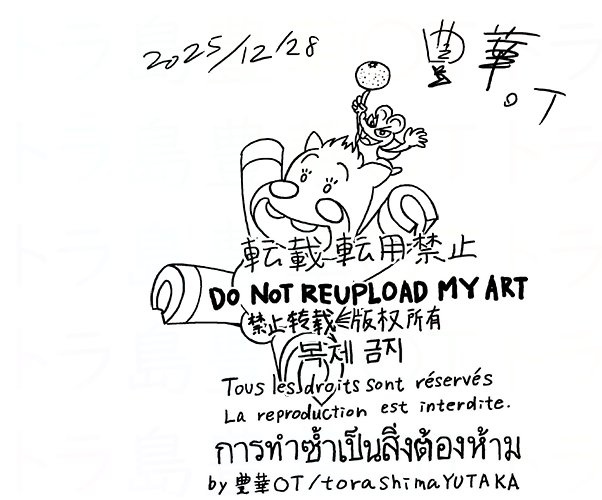 2025/12/28
豊華
。OT
転載・転用禁止
DO NOT REUPLOAD MY ART
禁止转载 版权所有
복제 금지
Tous les droits sont réservés
La reproduction est interdite.
การทำซ้ำเป็นสิ่งต้องห้าม
by 豊華OT/torashimaYUTAKA